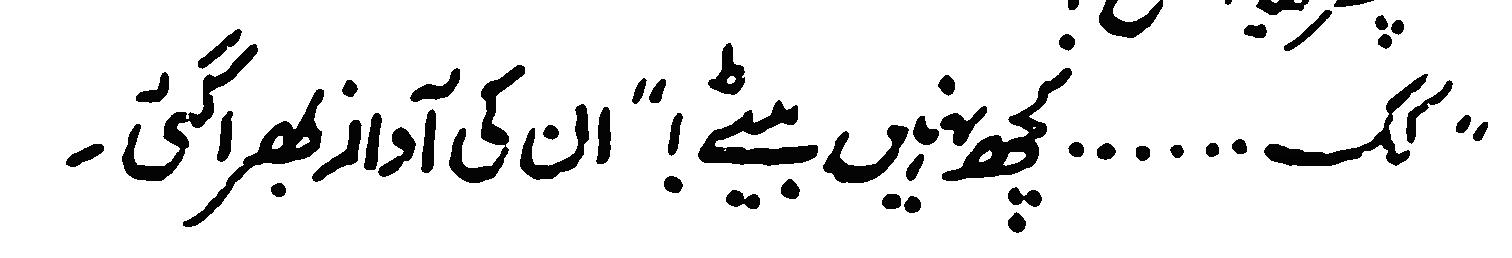 ”کک ...... کچھ نہیں بیٹے !“ ان کی آواز بھرا گئی ۔